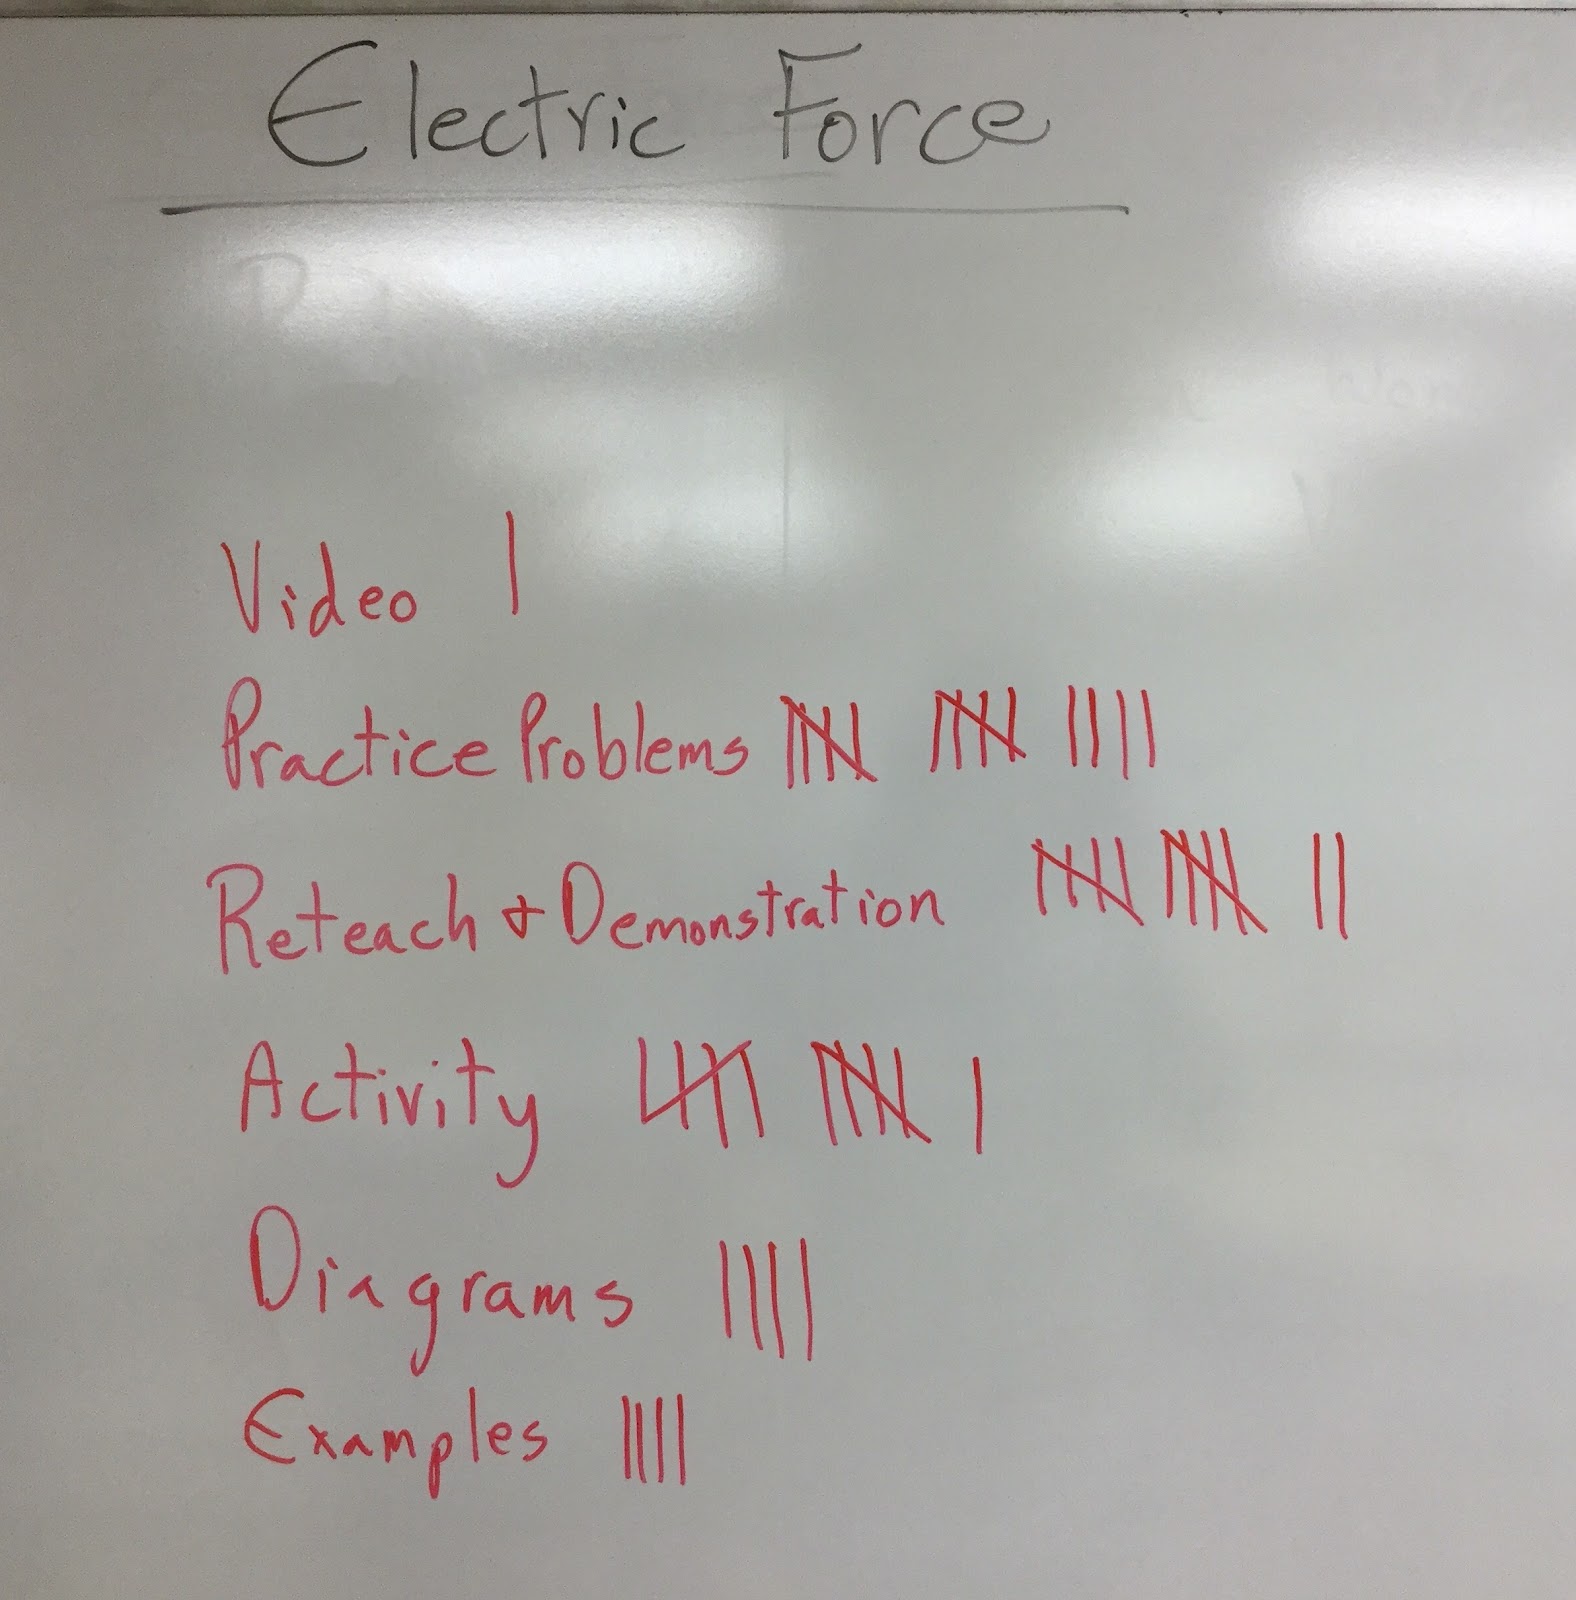 Electric Force
Video |
Practice Problems 卌 卌 ||||
Reteach & Demonstration 卌 卌 ||
Activity 卌 卌 |
Diagrams ||||
Examples ||||